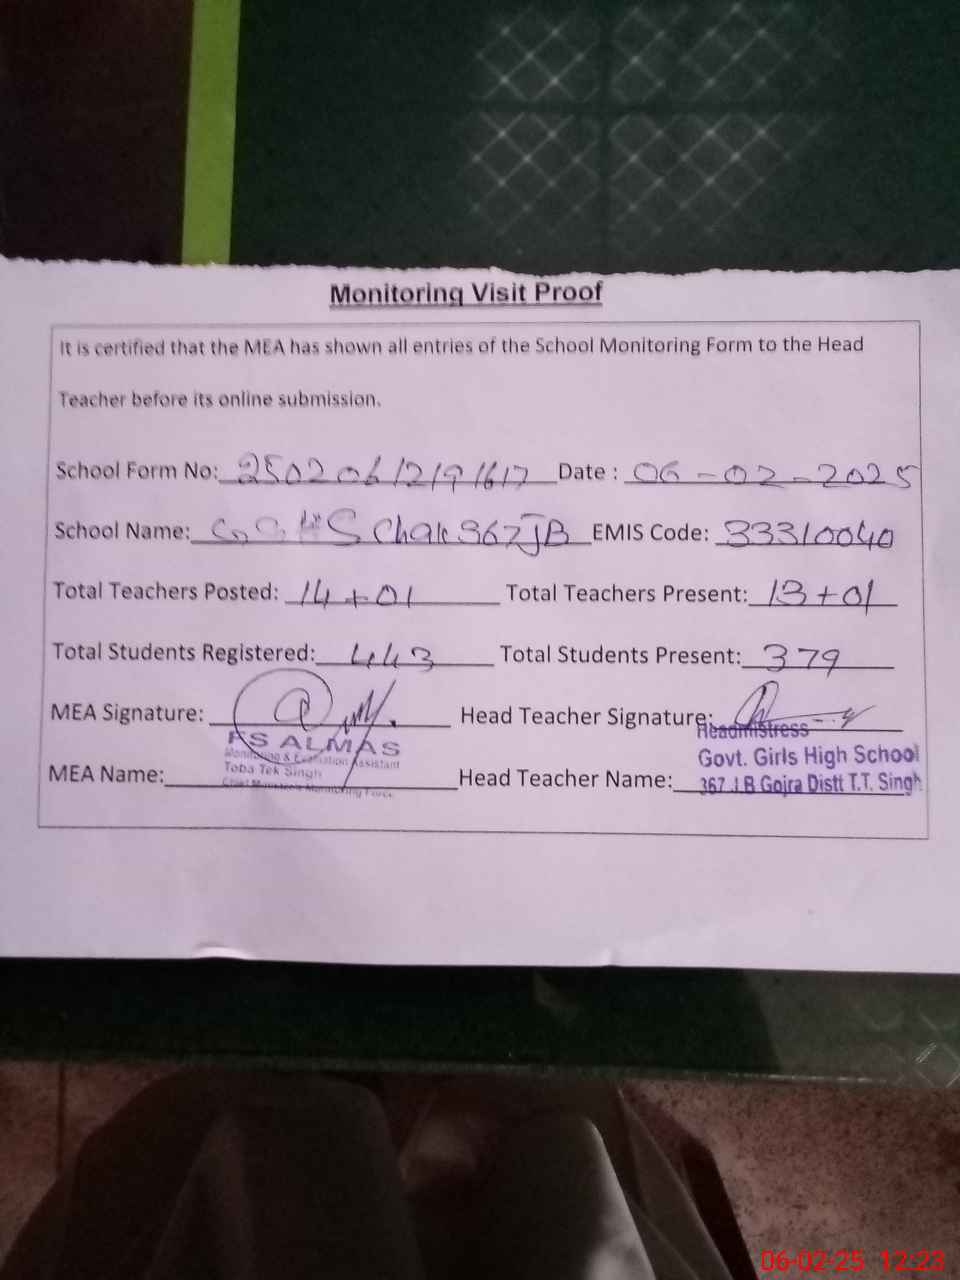 Monitoring Visit Proof
It is certified that the MEA has shown all entries of the School Monitoring Form to the Head
Teacher before its online submission.
School Form No: 25020612191617 Date : 06-02-2025
School Name: G.G.H.S Chak 367 JB EMIS Code: 33310040
Total Teachers Posted: 14+01 Total Teachers Present: 13+01
Total Students Registered: 443 Total Students Present: 379
MEA Signature: Head Teacher Signature:
FS ALMAS
Monitoring & Evaluation Assistant
Toba Tek Singh
Chief Minister's Monitoring Force
Headmistress
Govt. Girls High School
367 J.B Gojra Distt T.T. Singh
MEA Name: Head Teacher Name:
06-02-25 12:23